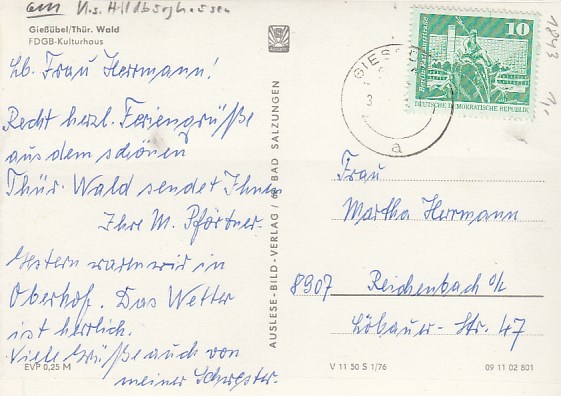 Krs. Hildburghausen
Gießübel/Thür. Wald
FDGB-Kulturhaus
Lb. Frau Herrmann!
Recht herzl. Feriengrüße
aus dem schönen
Thür. Wald sendet Ihnen
Ihre M. Pförtner.
Gestern waren wir in
Oberhof. Das Wetter
ist herrlich.
Viele Grüße auch von
meiner Schwester.
EVP 0,25 M
AUSLESE-BILD-VERLAG / 68 BAD SALZUNGEN
10
DEUTSCHE DEMOKRATISCHE REPUBLIK
GIESS
a
1843
Frau
Martha Herrmann
8907 Reichenbach o/L
Löbauer-Str. 47
V 11 50 S 1/76
09 11 02 801